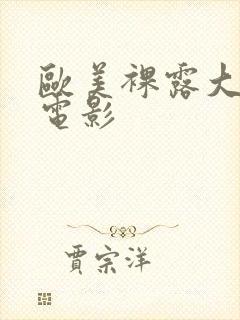 歐美裸露大
電影
賈宗洋